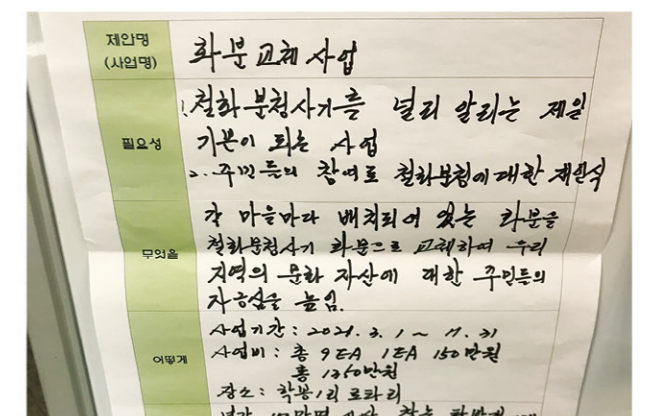 제안명
(사업명)
화분교체사업
필요성
1. 철화분청사기를 널리 알리는 제일
기본이 되는 사업
2. 주민들의 참여로 철화분청에 대한 재인식
무엇을
각 마을마다 배치되어 있는 화분을
철화분청사기 화분으로 교체하여 우리
지역의 문화 자산에 대한 주민들의
자긍심을 높임.
어떻게
사업기간 : 2021. 3. 1 ~ 11. 31
사업비 : 총 9EA 1EA 150만원
총 1350만원
장소 : 학봉1리 로타리